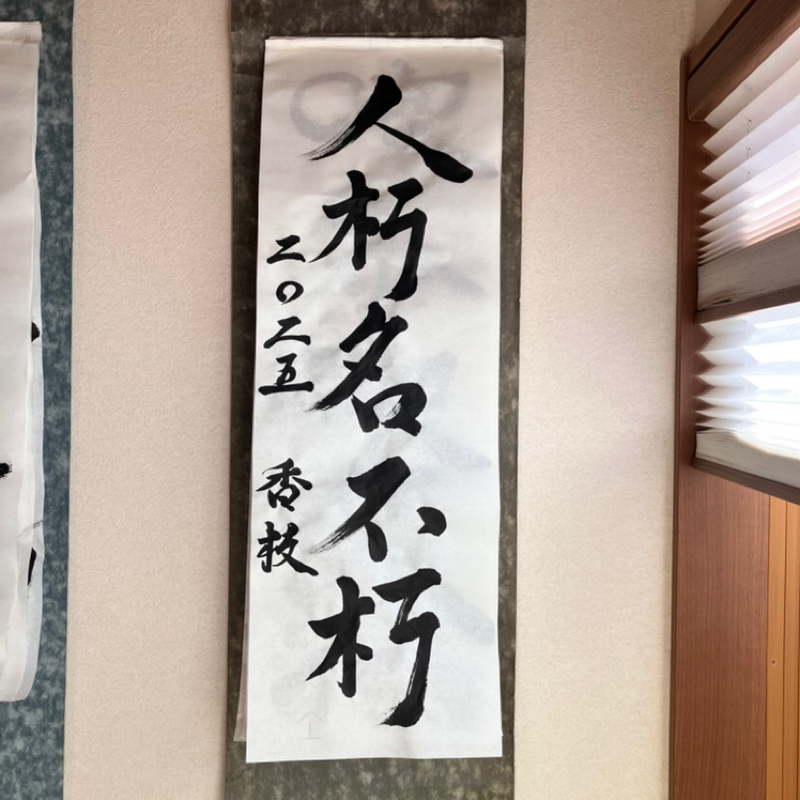 人朽名不朽
二〇二五 香枝